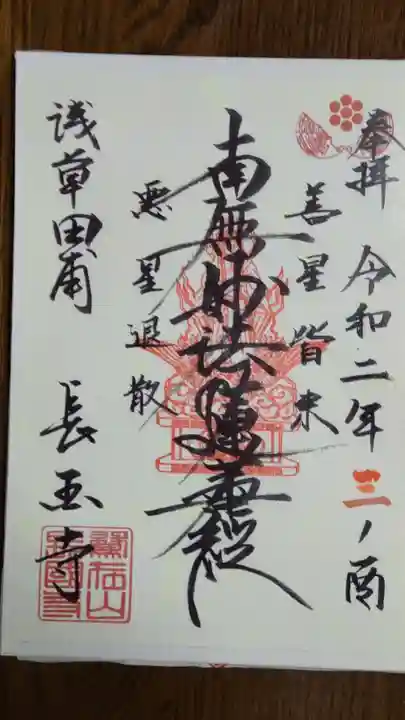 奉拝 令和二年三ノ酉
善星皆来
南無妙法蓮華経
悪星退散
浅草田甫 長国寺
鷲在山
長國寺